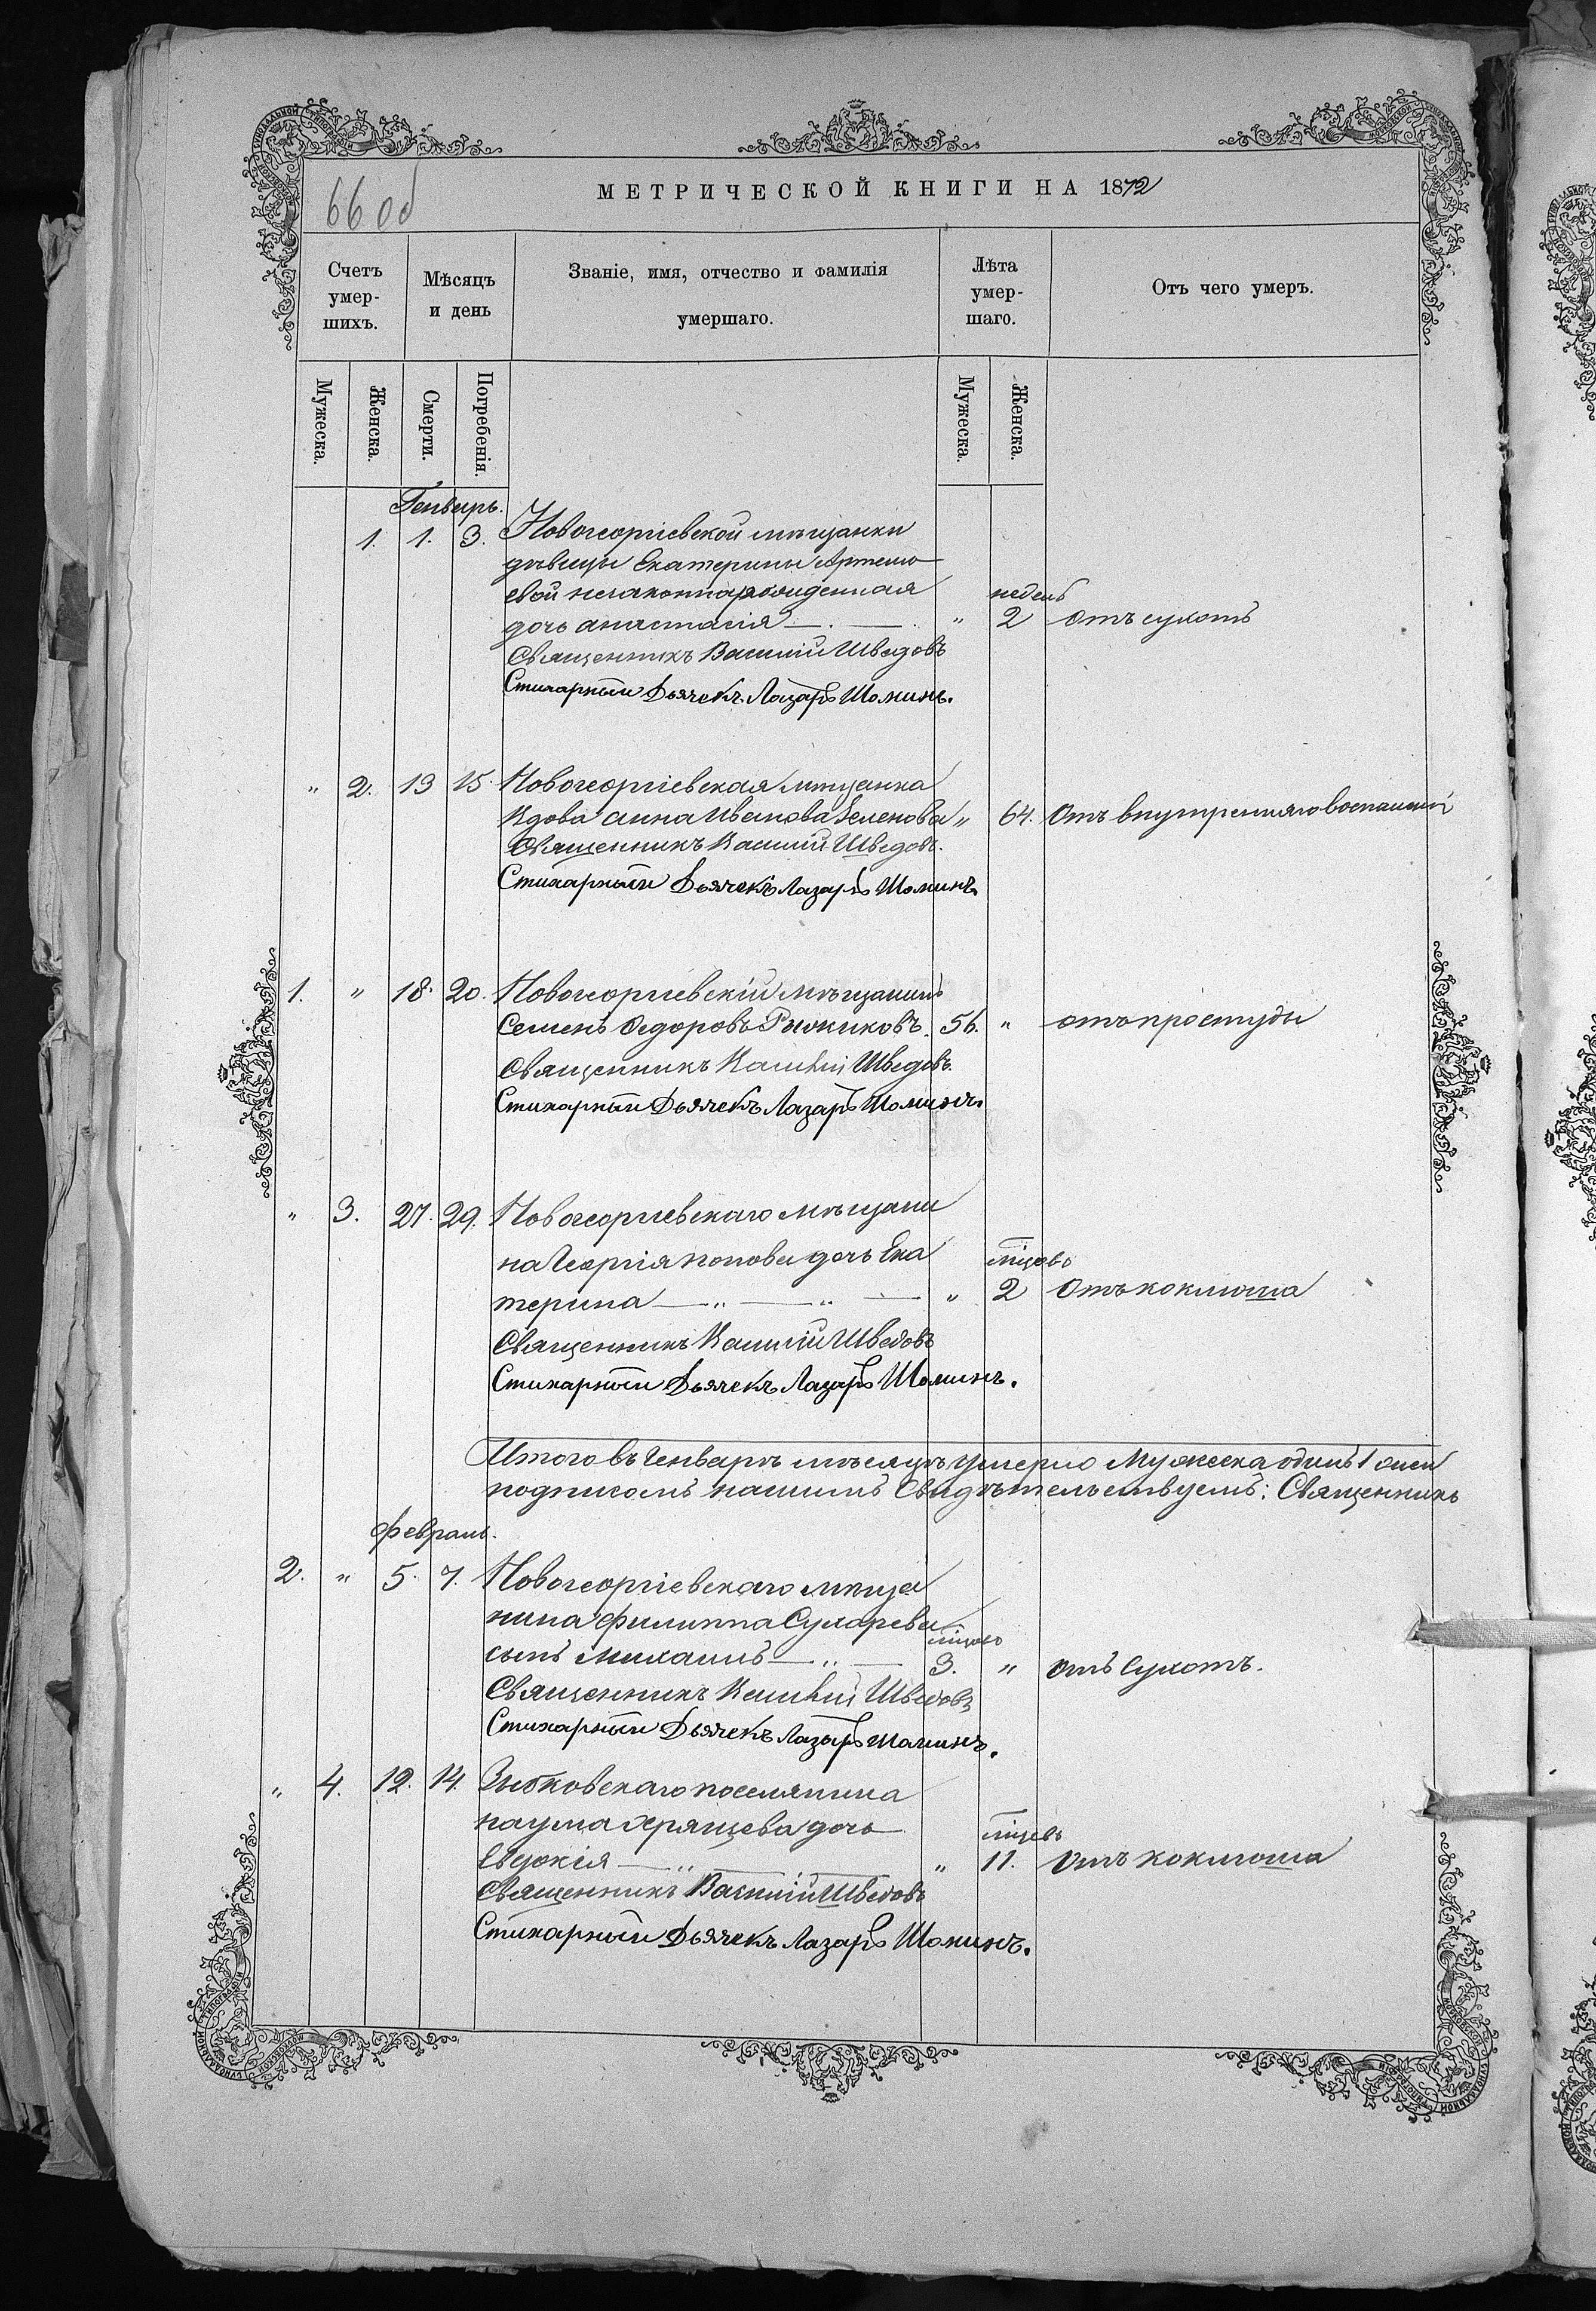 66 об
МЕТРИЧЕСКОЙ КНИГИ НА 1872
Счетъ умер-шихъ.
Мѣсяцъ и день
Званіе, имя, отчество и фамилія умершаго.
Лѣта умер-шаго.
Отъ чего умеръ.
Мужеска.
Женска.
Смерти.
Погребенія.
Мужеска.
Женска.
Генварь.
1. 1. 3. Новогеоргіевской мѣщанки
дѣвицы Екатерины Артемо
евой незаконнарожденная недель
дочь Анастасія " 2 отъ сухотъ
Священникъ Василій Шведовъ
Стихарный Дьячекъ Лазарь Шоминъ.
" 2. 13 15. Новогеоргіевская мѣщанка
Вдова Анна Иванова Зеленова " 64. Отъ внутренняго воспаленія
Священникъ Василій Шведовъ.
Стихарный Дьячекъ Лазарь Шоминъ.
1. " 18. 20. Новогеоргіевскій мѣщанинъ
Семенъ Федоровъ Рыжиковъ. 56. " отъ простуды
Священникъ Василій Шведовъ.
Стихарный Дьячекъ Лазарь Шоминъ.
" 3. 27. 29. Новогеоргіевскаго мѣщани
на Георгія Попова дочь Ека мцовъ
терина " 2 Отъ коклюша
Священникъ Василій Шведовъ
Стихарный Дьячекъ Лазарь Шоминъ.
Итого въ Генварѣ мѣсяцѣ умерло Мужеска одинъ 1 жен
подписомъ нашимъ Свидѣтельствуемъ: Священникъ
Февраль.
2. " 5. 7. Новогеоргіевскаго мѣща
нина Филиппа Сухарева мцовъ
сынъ Михаилъ 3. " отъ Сухотъ.
Священникъ Василій Шведовъ
Стихарный Дьячекъ Лазарь Шоминъ.
" 4. 12. 14. Зыбковскаго поселянина
Наума Хрящева дочь мцевъ
Евдокія " 11. Отъ коклюша
Священникъ Василій Шведовъ
Стихарный Дьячекъ Лазарь Шоминъ.